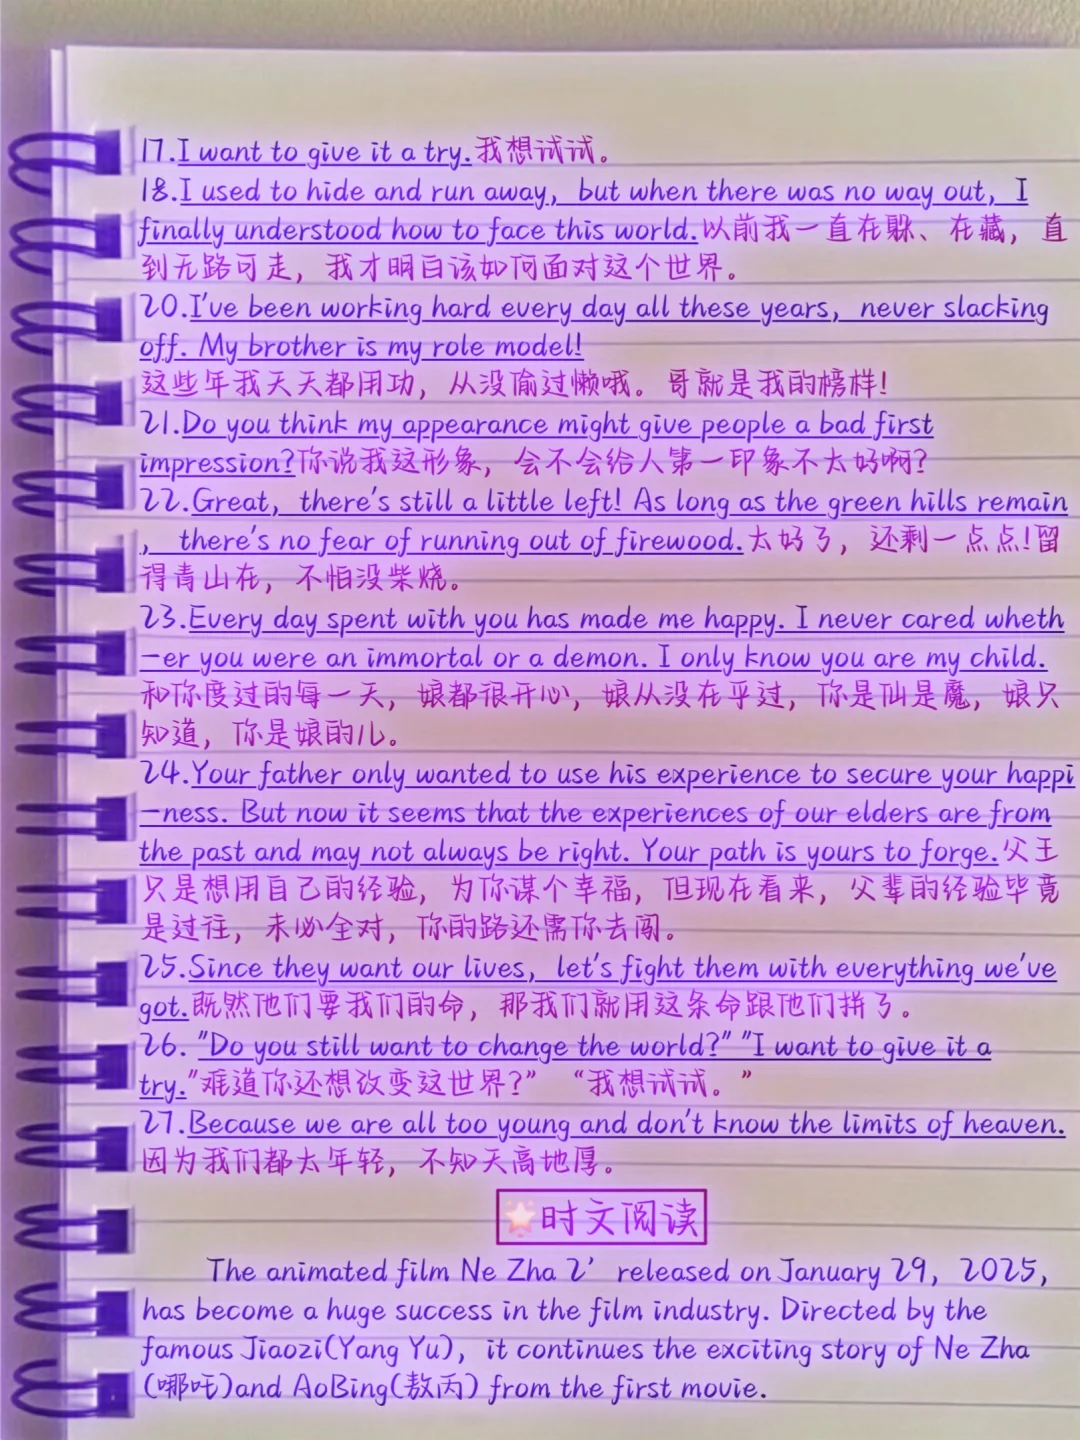 17.I want to give it a try.我想试试。
18.I used to hide and run away, but when there was no way out, I
finally understood how to face this world.以前我一直在躲、在藏，直
到无路可走，我才明白该如何面对这个世界。
20.I've been working hard every day all these years, never slacking
off. My brother is my role model!
这些年我天天都用功，从没偷过懒哦。哥就是我的榜样!
21.Do you think my appearance might give people a bad first
impression?你说我这形象，会不会给人第一印象不太好啊?
22.Great, there's still a little left! As long as the green hills remain
, there's no fear of running out of firewood.太好了，还剩一点点!留
得青山在，不怕没柴烧。
23.Every day spent with you has made me happy. I never cared wheth
-er you were an immortal or a demon. I only know you are my child.
和你度过的每一天，娘都很开心，娘从没在乎过，你是仙是魔，娘只
知道，你是娘的儿。
24.Your father only wanted to use his experience to secure your happi
-ness. But now it seems that the experiences of our elders are from
the past and may not always be right. Your path is yours to forge.父王
只是想用自己的经验，为你谋个幸福，但现在看来，父辈的经验毕竟
是过往，未必全对，你的路还需你去闯。
25.Since they want our lives, let's fight them with everything we've
got.既然他们要我们的命，那我们就用这条命跟他们拼了。
26. "Do you still want to change the world?" "I want to give it a
try."难道你还想改变这世界?” “我想试试。”
27.Because we are all too young and don't know the limits of heaven.
因为我们都太年轻，不知天高地厚。
🌟时文阅读
The animated film Ne Zha 2' released on January 29, 2025,
has become a huge success in the film industry. Directed by the
famous Jiaozi(Yang Yu), it continues the exciting story of Ne Zha
(哪吒)and AoBing(敖丙) from the first movie.